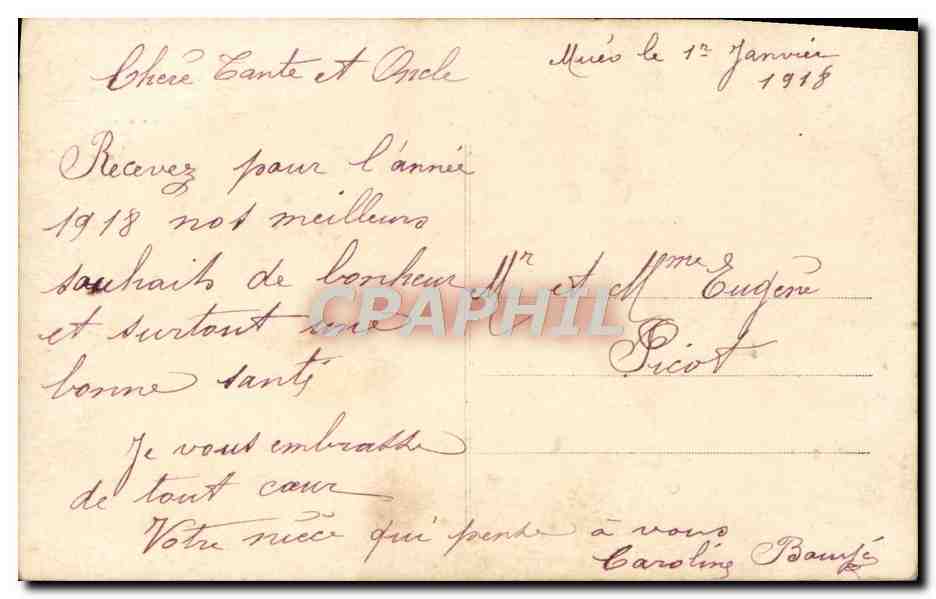 le 1er Janvier
1918
Chère Tante et Oncle
Recevez pour l'année
1918 nos meilleurs
souhaits de bonheur
et surtout une
bonne santé
Je vous embrasse
de tout cœur
Votre nièce qui pense à vous
Caroline
Mr et Mme Eugène
Picot
CPAPHIL